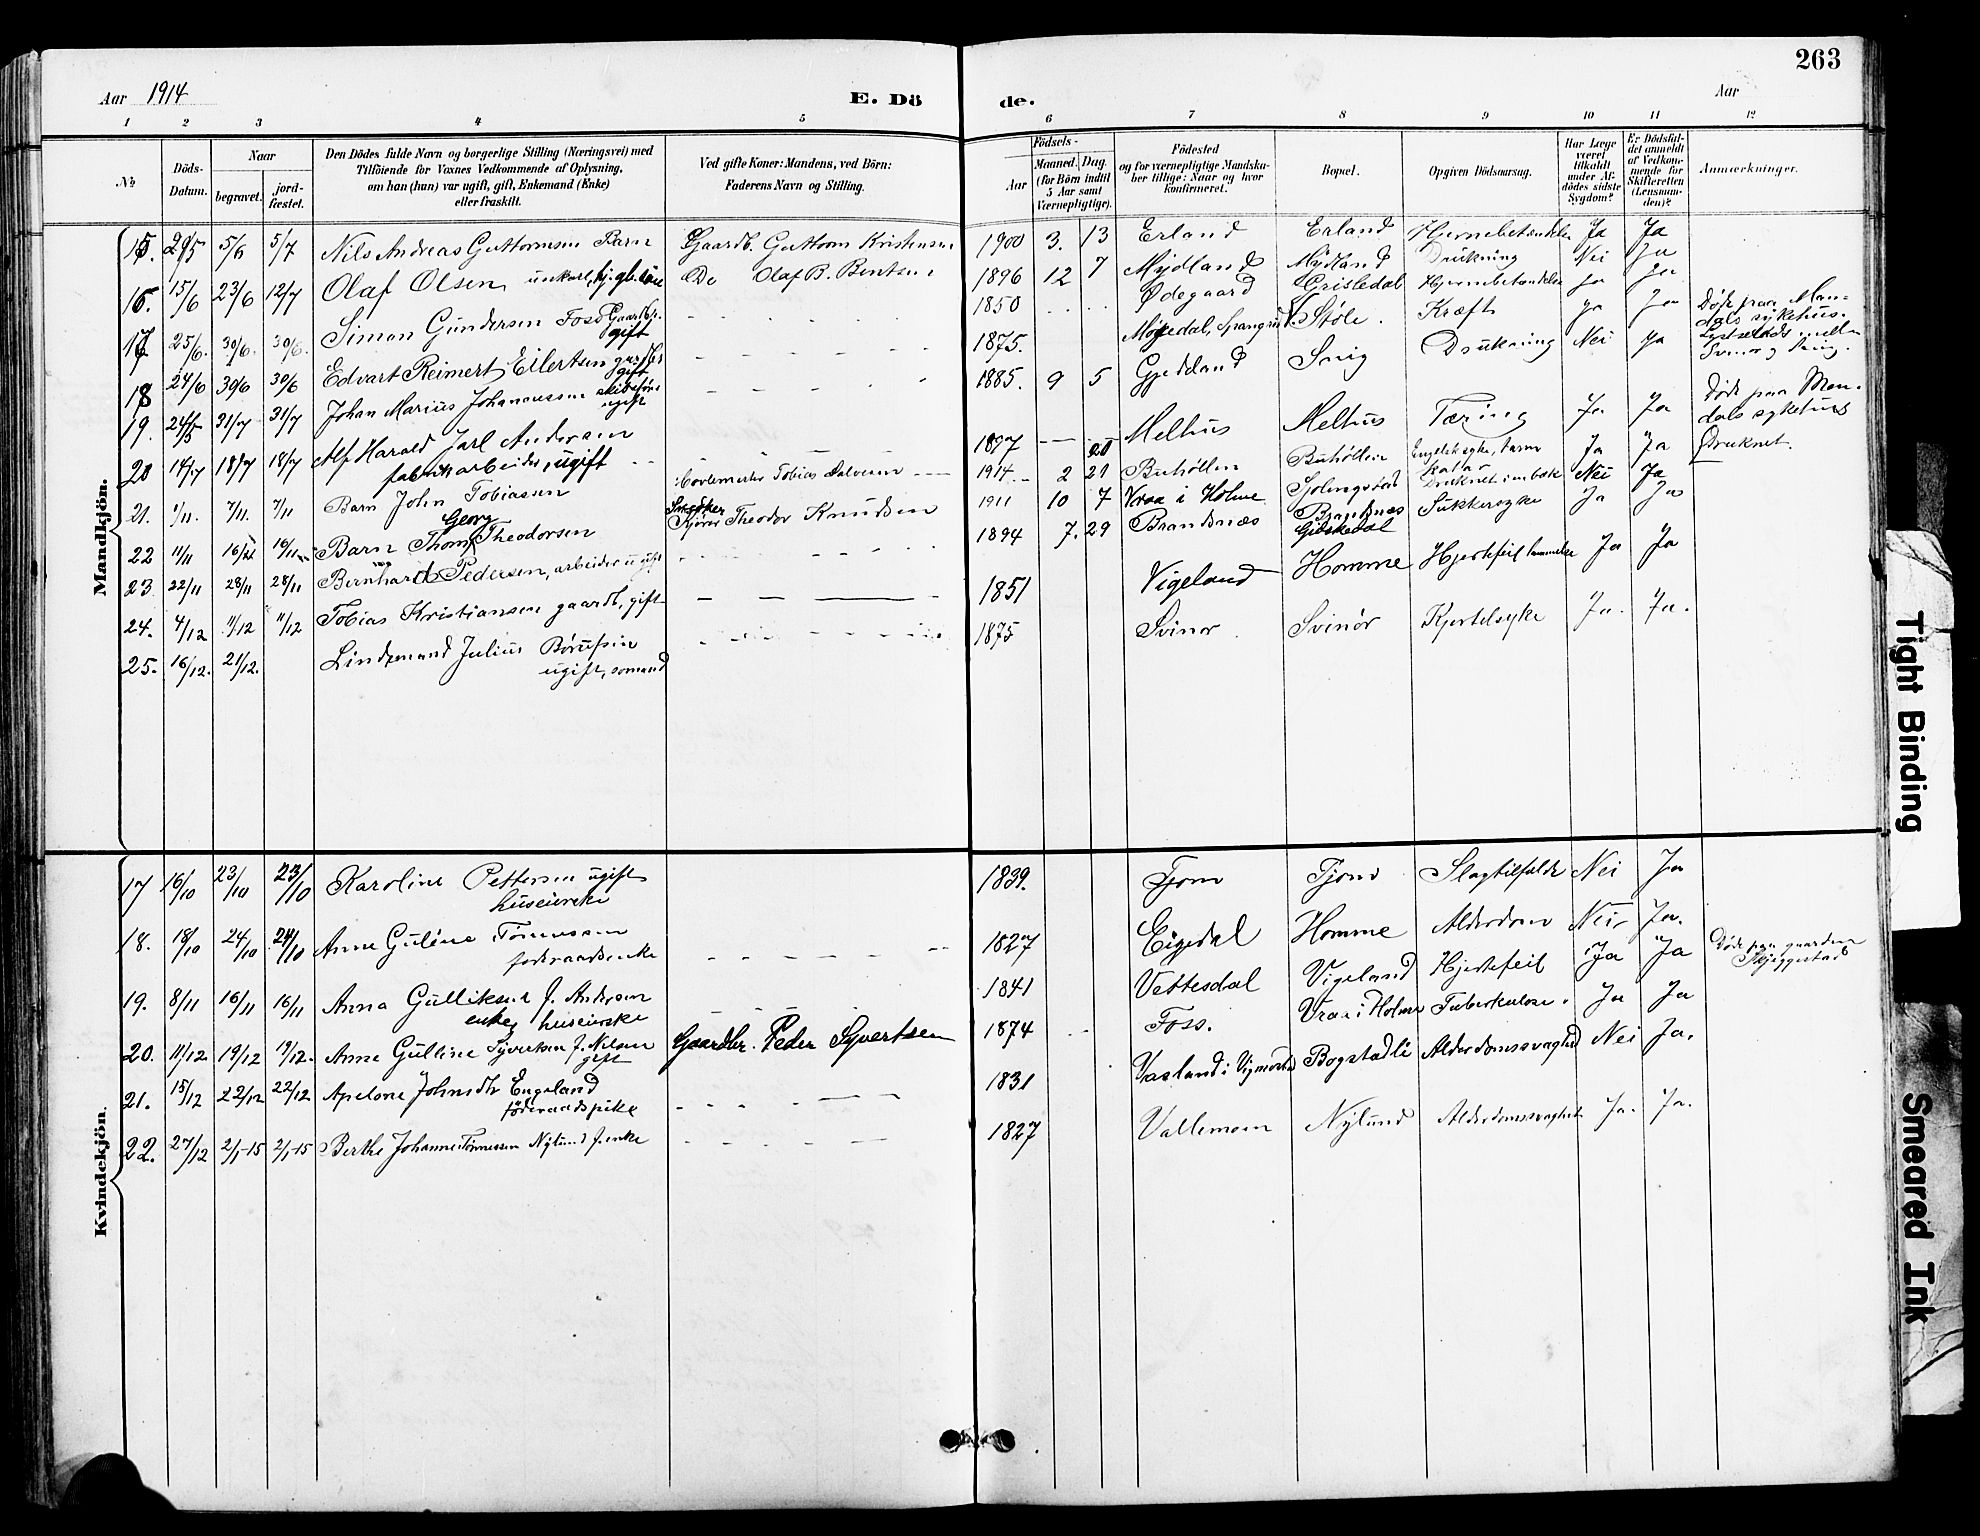 263
Aar 1914
E. Dö
de.
Aar
1 2 3 4 5 6 7 8 9 10 11 12
No
Döds-
Datum.
Naar
begravet.
jord-
fæstet.
Den Dödes fulde Navn og borgerlige Stilling (Næringsvei) med
Tilföiende for Voxnes Vedkommende af Oplysning,
om han (hun) var ugift, gift, Enkemand (Enke)
eller fraskilt.
Ved gifte Koner: Mandens, ved Börn:
Faderens Navn og Stilling.
Födsels-
Aar
Maaned. Dag.
(for Börn indtil
5 Aar samt
Værnepligtige).
Födested
og for værnepligtige Mandska-
ber tillige: Naar og hvor
konfirmeret.
Bopæl.
Opgiven Dödsaarsag.
Har Læge
været
tilkaldt
under Af-
dödes sidste
Sygdom?
Er Dödsfal-
det anmeldt
af Vedkom-
mende for
Skifteretten
(Lensman-
den)?
Anmærkninger.
Mandkjön.
15. 29/5 5/6 5/7 Nils Andreas Guttormsen Barn Gaardb. Guttorm Kristensen 1900 3. 13 Erland Erland Hjernebetændelse Ja Ja
16. 15/6 23/6 12/7 Olaf Olsen, unkarl, Do Olaf B. Bentsen 1896 12 7 Mydland Mydland Drukning Nei Ja
17 25/6. 30/6. 30/6. Simon Gundersen Foss Gaardbr. gift 1850 Ødegaard Grisledal Hjernebetændelse Ja Ja
18 24/6 30/6 30/6 Edvart Reimert Eilertsen gaardbr gift 1875. Støle. Kræft Ja Ja Døde paa Man-
dals sykehus.
19. 31/7 31/7 Johan Marius Johannessen ugift 1885. 9 5 Gjeddand Snig Drukning Nei Ja
20 14/7 18/7 18/7 Alf Harald Jarl Andersen
fabrikarbeider, ugift 1897 Melhus Melhus Tæring Ja Ja Døde paa Man-
dals sykehus
21. 1/11. 7/11. 7/11 Barn John Tobiassen Tobias Dalveien 1914 2 21 Buhøllen Buhøllen Engelsk syke, tarm
katar Ja Ja Druknet.
22 11/11 16/11 16/11 Barn Thom Georg Theodorsen Theodor Knudsen 1911 10 7 Vraa i Holme Druknet i en bæk Nei Ja
23. 22/11 28/11 28/11 Bernhard Pedersen, arbeider ugift 1894 7. 29 Brandsnæs Brandsnæs
Gidskedal Sukkersyke Ja Ja
24. 4/12 11/12 11/12 Tobias Kristiansen gaardb, gift 1851 Vigeland Homme Hjertefeil Ja Ja
25. 16/12. 21/12. Lindemand Julius Børufsin
ugift, sømand 1875 Svinør Svinør Kjertelsyke Ja. Ja.
Kvindekjön.
17 16/10 23/10 23/10 Karoline Pettersen ugift
huseierske 1839. Tjom Tjom Slagtilfælde Nei Ja
18. 18/10 24/10 24/10 Anne Gulene Tønnesen
foderaadsenke 1827 Eigedal Homme Alderdom Nei, Ja.
19. 8/11 16/11 16/11 Anna Gulliksen f. Andersen
enke, huseierske 1841 Vettesdal Vigeland Hjertefeil Ja Ja Døde paa gaarden
Skjeggestad
20. 11/12 19/12 19/12. Anne Gulline Syvertsen f. Nilsen
gift Gaardbr. Peder Syvertsen 1874 Foss. Vraa i Holme Tuberkulose. Ja Ja
21. 15/12 22/12 22/12 Apelone Johnsdtr Engeland
föderaadspike 1831 Vasland i Bogstadli Alderdomssvaghed Nei Ja.
22. 27/12 2/1-15 2/1-15 Berthe Johanne Tønnessen Nylund f. enke 1827 Vallemoen Nylund Alderdomssvaghed Ja. Ja.
Tight Binding
Smeared Ink